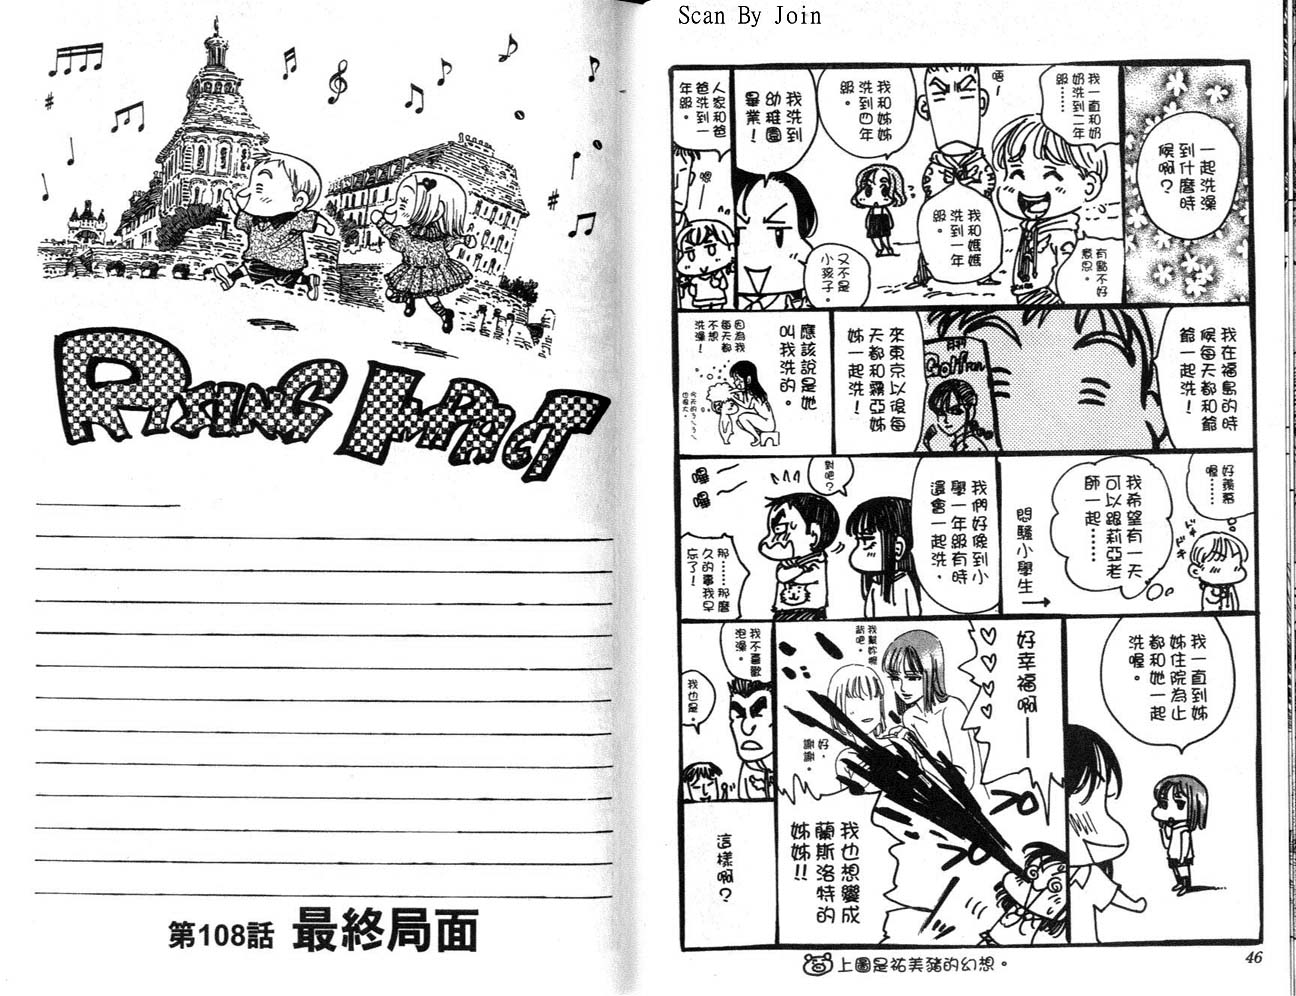 Scan By Join
一起洗澡
到什麼時
候啊？
我一直和奶
奶洗到二年
級……
有點不好
意思。
唔！
我和媽媽
洗到一年
級。
我和姊姊
洗到四年
級。
我洗到
幼稚園
畢業！
又不是
小孩子。
人家和爸
爸洗到一
年級。
嗯
我在福島的時
候每天都和爺
爺一起洗！
月刊
Golf
來東京以後每
天都和霧亞姊
姊一起洗！
應該說是她
叫我洗的。
因為我
每天都
不想
洗澡！
好羨慕
喔……
ドキ
ドキ
我希望有一天
可以跟莉亞老
師一起……
悶騷小學生
→
我們好像到小
學一年級有時
還會一起洗，
對吧？
嘿
嘿
那……那麼
久的事我早
忘了！
我一直到姊
姊住院為止
都和她一起
洗喔。
好幸福啊——
♡♡♡♡
我幫妳擦
背吧。
好，
謝謝。
我也想變成
蘭斯洛特的
姊姊!!
我不喜歡
泡澡。
我也是。
這樣啊？
上圖是祐美豬的幻想。
46
RISING IMPACT
第108話 最終局面